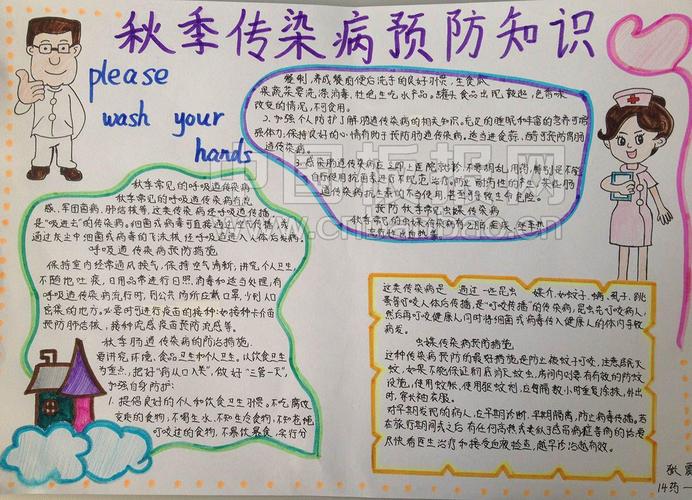 秋季传染病预防知识
please
wash your
hands
秋季常见的呼吸道传染病
秋季常见的呼吸道传染病有流
感、军团菌病、肺结核等,这类传染病经呼吸道传播,
是"吸进去"的传染病。细菌或病毒可直接通过空气传播,或
通过灰尘中细菌或病毒的飞沫核经呼吸道进入人体后发病。
呼吸道传染病预防措施
保持室内经常通风换气,保持空气清新,讲究个人卫生,
不随地吐痰,日用品常进行日照、消毒和适当处理,有
呼吸道传染病流行时,到公共场所应戴口罩,少到人口
密集的地方。必要时可进行疫苗的接种:如接种卡介苗
预防肺结核,接种流感疫苗预防流感等。
秋季肠道传染病的防治措施
要讲究环境、食品卫生和个人卫生。以饮食卫生
为重点,把好"病从口入"关,做好"三管一灭",
加强自身防护:
1、提倡良好的个人和饮食卫生习惯。不吃腐败
变质的食物,不喝生水,不知生冷食物,不知苍蝇
叮咬过的食物,不暴饮暴食,实行分
餐制,养成餐前便后洗手的良好习惯,生食瓜
果蔬菜要洗涤消毒,杜绝生吃水产品。罐头食品出现鼓起,色香味
改变的情况,不可食用。
2、加强个人防护了解肠道传染病的相关知识。充足的睡眠和丰富的营养可增
强体力,保持良好的心情有助于预防肠道传染病。适当进食蒜、醋可预防胃肠
道传染病。
3、感染肠道传染病应立即上医院就诊,不要胡乱用药,特别是不能
自行使用抗菌素进行不规范治疗。防止耐药性的产生,某些肠
道传染病抗生素的不当使用,甚至可导致生命危险。
预防秋季常见虫媒传染病
秋季常见的虫媒传染病有乙脑、疟疾、登革热
这类传染病是通过一些昆虫媒介,如蚊子、螨、虱子、跳
蚤等叮咬人体后传播,是"叮咬传播"的传染病,昆虫先叮咬病人,
然后再叮咬健康人同时将细菌或病毒传入健康人的体内导致
病发。
虫媒传染病预防措施
这种传染病预防的最好措施是防止被蚊子叮咬。注意居民灭
蚊,如果不能保证射底消灭蚊虫,房间内则要有有效的防蚊
设施,使用蚊帐,使用驱蚊剂,应每隔数小时重复涂抹,外出
时,穿长袖衣服。
对早期发现的病人,应早期诊断,早期隔离,防止病毒传播。若
在旅行期间或之后有任何高热或类似感冒病症等病的话要
尽快看医生治疗和接受血液检查,越早诊治越有效。
14药一